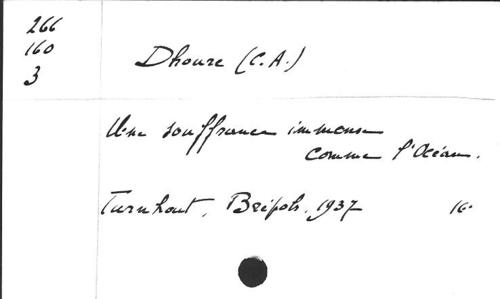 266
160
3
Dhoure (C.A.)
Une souffrance immense
comme l'Océan.
Turnhout, Brépols, 1937 16.